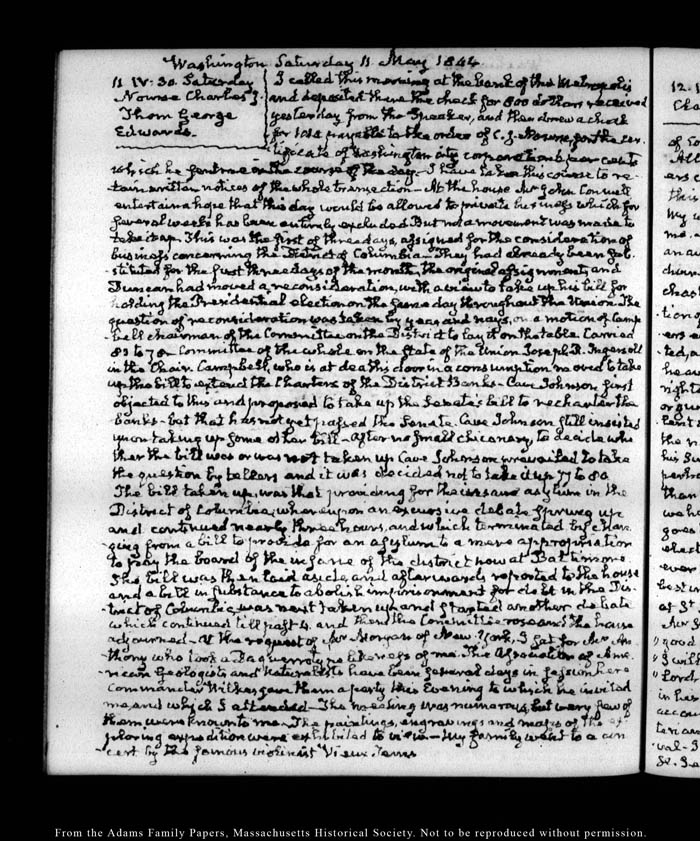 Washington Saturday 11 May 1844
11. IV:30. Saturday
Nourse Charles J.
Thom George
Edwards.
I called this morning at the bank of the Metropolis
and deposited there the check for 800 dollars received
yesterday from the Speaker, and then drew a check
for payable to the order of C. J. Nourse, for the cer-
tificate of Washington city corporation per cents
which he sent me in the course of the day. I have taken this course to re-
tain written notices of the whole transaction. At the house Mr John
entertain a hope that this day would be allowed to private business which for
several weeks has been entirely excluded But not a movement was made to
take it up. This was the first of three days, assigned for the consideration of
business concerning the District of Columbia. They had already been sub-
stituted for the first three days of the month, the original assignment, and
Duncan had moved a reconsideration, with a view to take up his bill for
holding the Presidential election on the same day throughout the Union. The
question of reconsideration was taken by yeas and nays, on a motion of Camp-
bell chairman of the Committee on the District to lay it on the table. Carried
82 to 72. Committee of the whole on the State of the Union Joseph R. Ingersoll
in the Chair. Campbell, who is at death's door in a consumption moved to take
up the bill to extend the Charters of the District Banks. Cave Johnson first
objected to this and proposed to take up the Senate's bill to recharter the
banks. but that has not yet passed the Senate. Cave Johnson still insisted
upon taking up some other bill. After no small chicanery to decide whe
ther the bill was or was not taken up Cave Johnson prevailed to take
the question by tellers and it was decided not to take it up 77 to 80
The bill taken up, was that providing for the insane asylum in the
District of Columbia, whereupon an excursive debate sprung up
and continued nearly three hours, and which terminated by chan-
ging from a bill to provide for an asylum to a mere appropriation
to pay the board of the insane of the district now at Baltimore
The bill was then laid aside, and afterwards reported to the house
and a bill in substance to abolish imprisonment for debt in the Dis-
trict of Columbia, was next taken up and started another debate
which continued till past 4. and then the Committee rose and the house
adjourned. At the request of Mr Morgan of New-York, I sat for Mr An-
thony who took a Daguerrotype likeness of me. The Association of Ame-
rican Geologists and Naturalists have been several days in session here
Commander Wilkes gave them a party this Evening to which he invited
me and which I attended. The meeting was numerous, but very few of
them were known to me. The paintings, engravings and maps of the ex-
ploring expedition were exhibited to view. My family went to a con
cert by the famous violinist Vieux-Temps
From the Adams Family Papers, Massachusetts Historical Society. Not to be reproduced without permission.